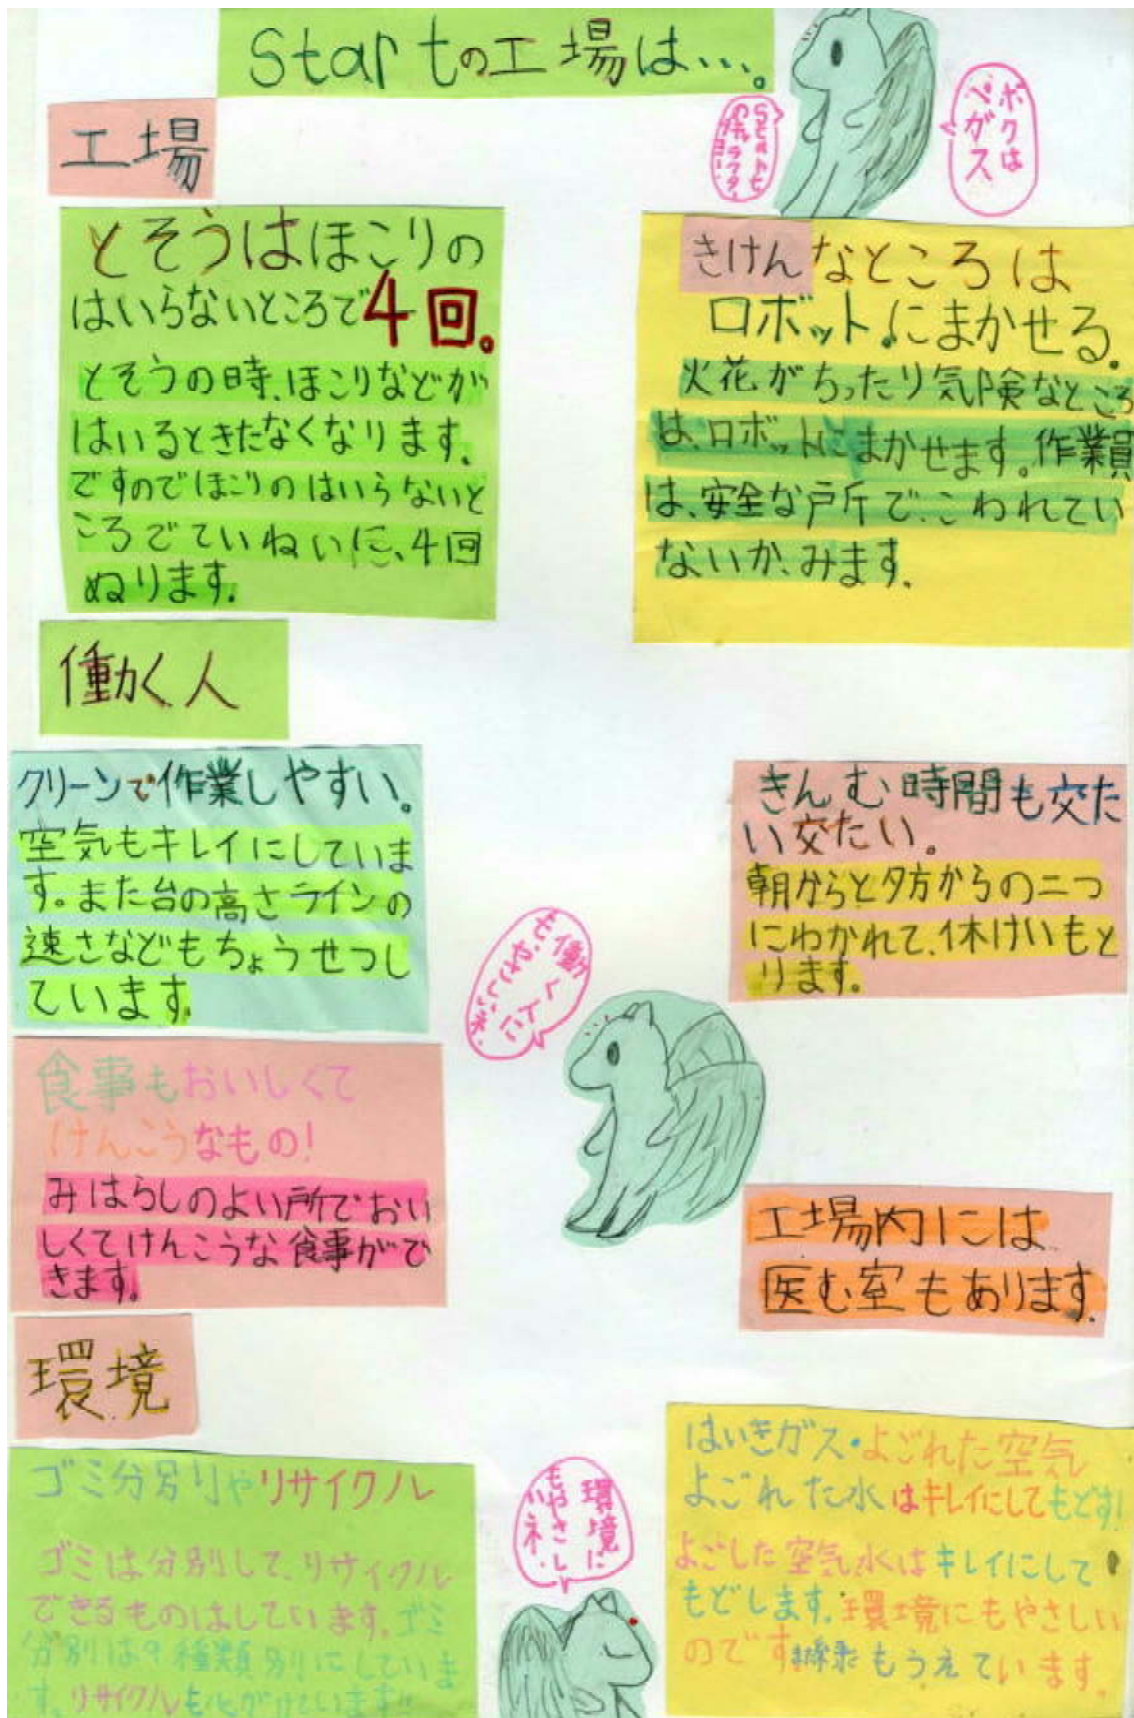 Startの工場は…。
ボクは
ペガス
Startの
キャラクター
工場
とそうはほこりの
はいらないところで4回。
とそうの時、ほこりなどが
はいるときたなくなります。
ですのでほこりのはいらないと
ころでていねいに、4回
ぬります。
きけんなところは
ロボットにまかせる。
火花がちったり気険なところ
は、ロボットにまかせます。作業員
は、安全な戸斤で、こわれてい
ないか、みます。
働く人
クリーンで作業しやすい。
空気もキレイにしていま
す。また台の高さラインの
速さなどもちょうせつし
ています。
きんむ時間も交た
い交たい。
朝からと夕方からの二つ
にわかれて、休けいもと
ります。
働く人に
もやさしいネ。
食事もおいしくて
けんこうなもの!
みはらしのよい所でおい
しくてけんこうな食事がで
きます。
工場内には
医む室もあります。
環境
ゴミ分別やリサイクル
ゴミは分別して、リサイクル
できるものはしています。ゴミ
分別は9種類別にしていま
す。リサイクルも心がけています!!
環境に
もやさし
いネ。
はいきガス・よごれた空気
よごれた水はキレイにしてもどす!
よごした空気水はキレイにして
もどします。環境にもやさしい
のです。緑もうえています。